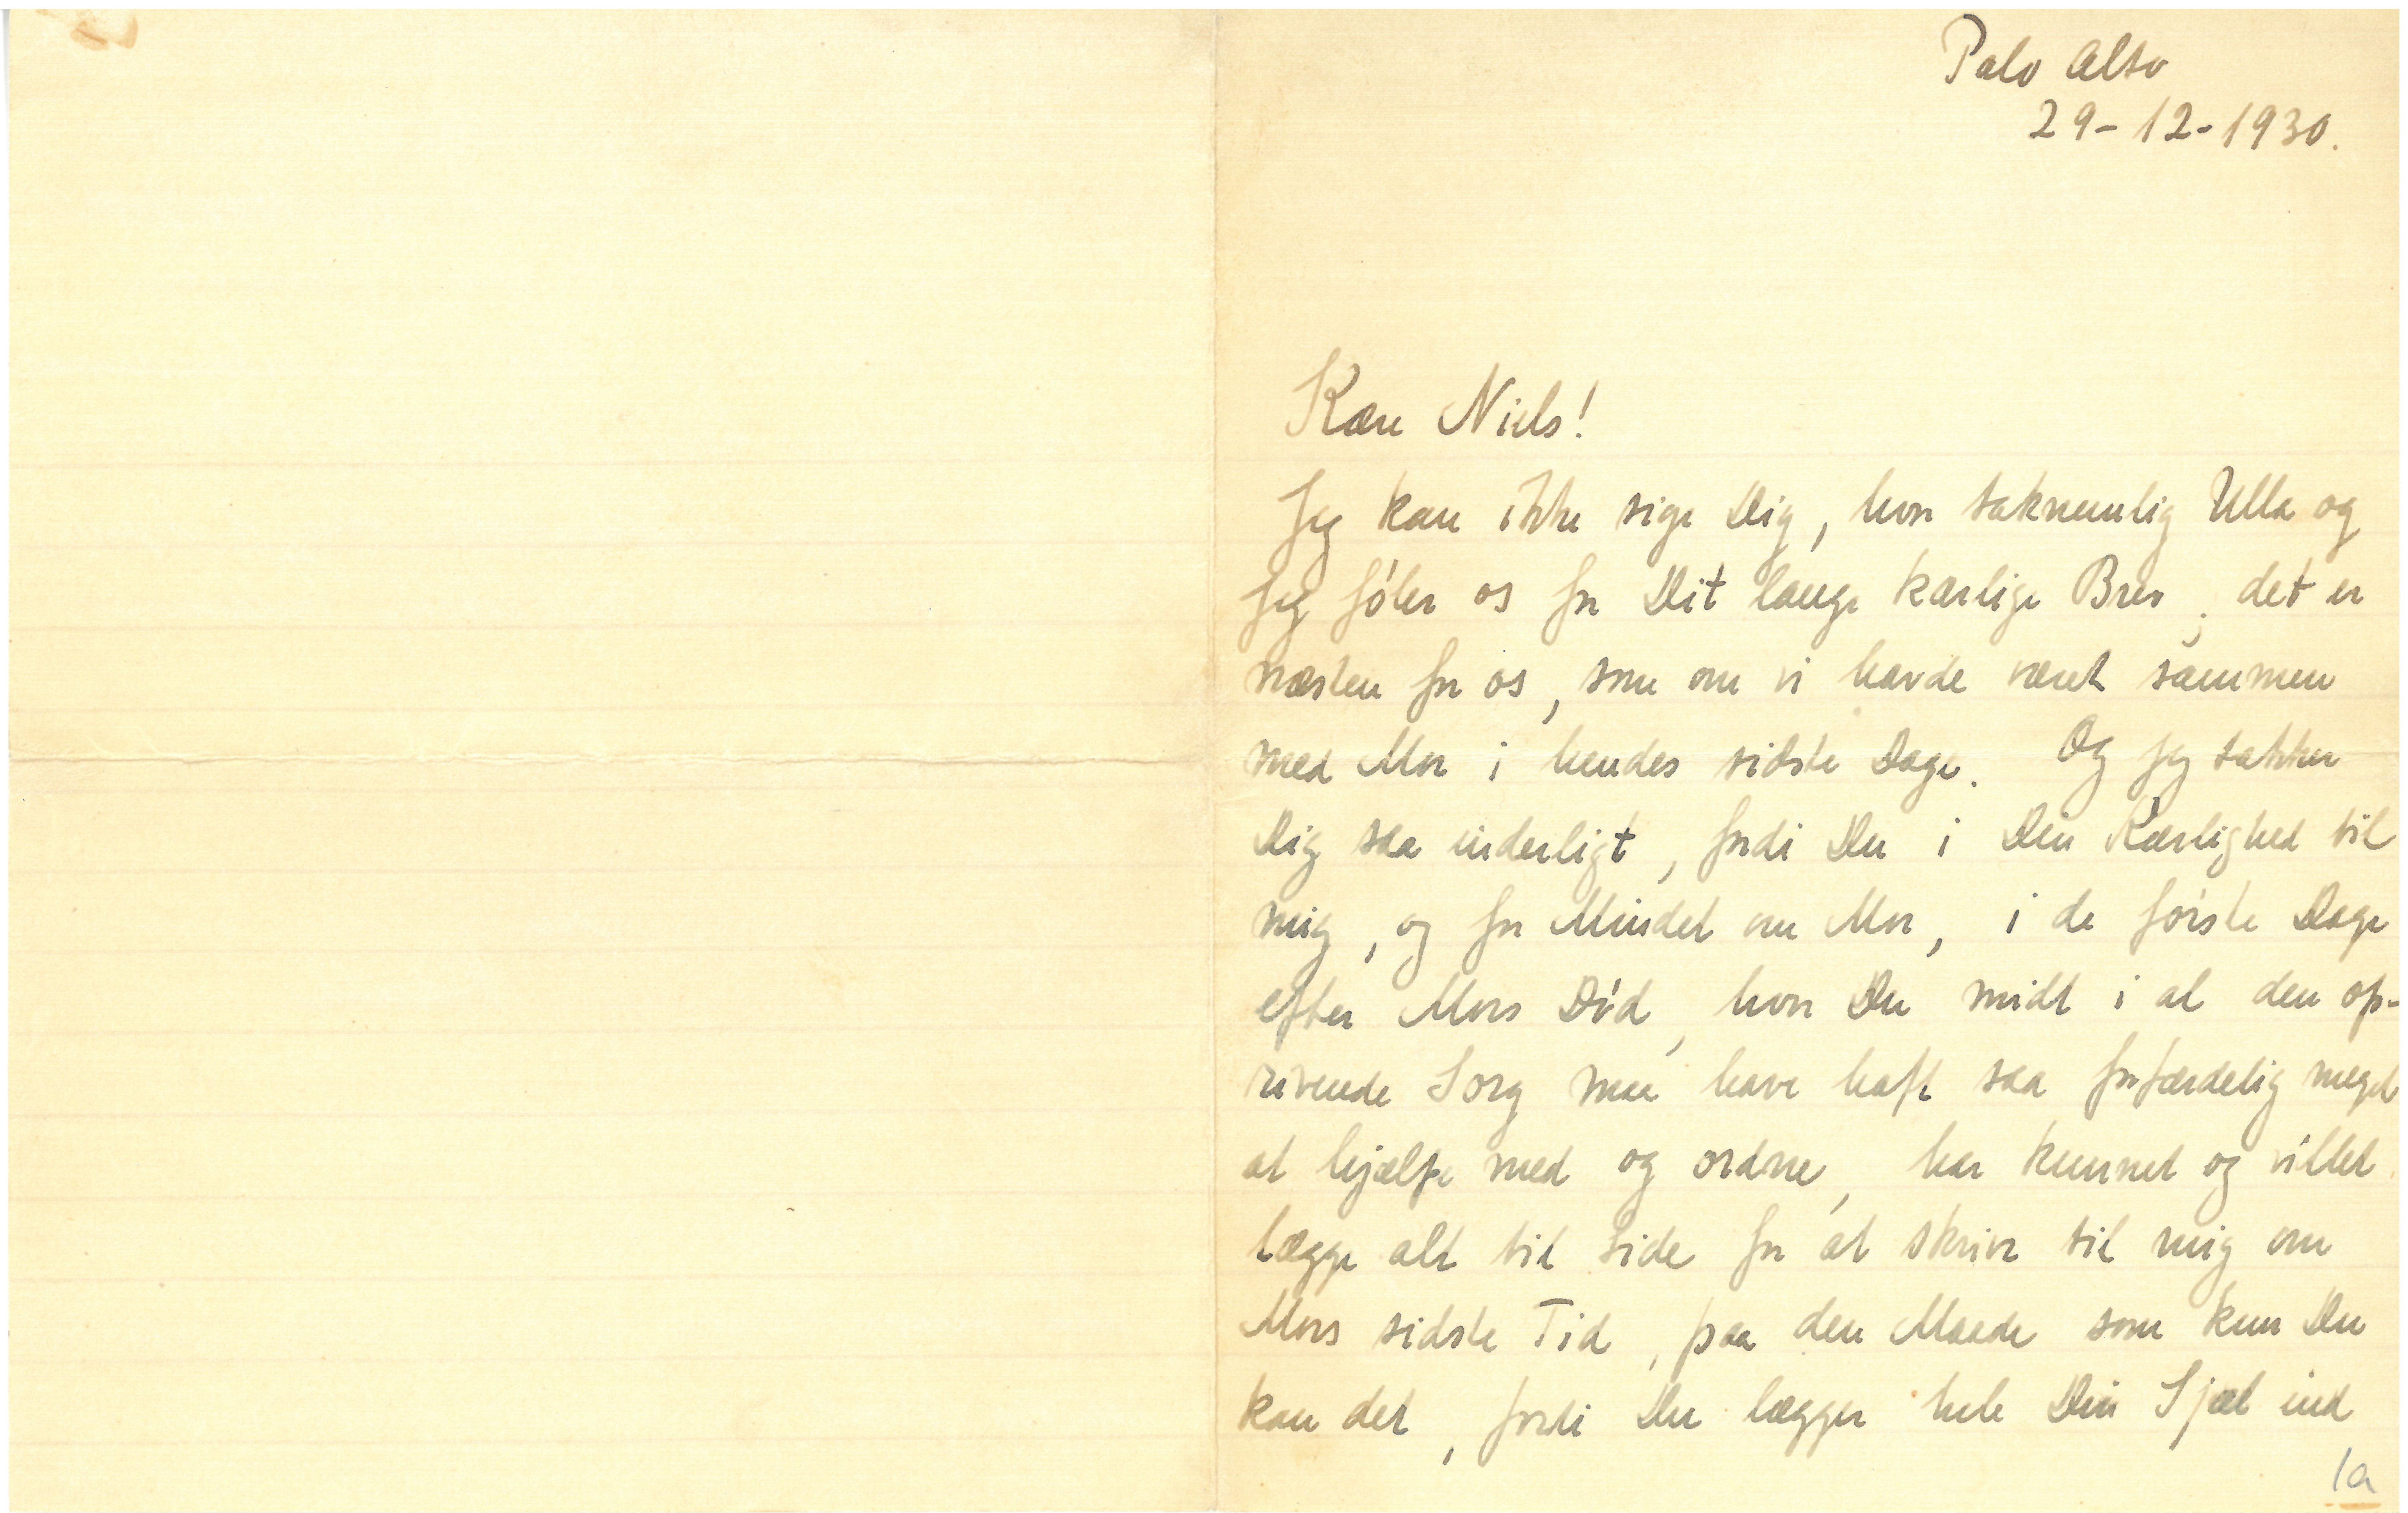 Palo Alto
29-12-1930.
Kære Niels!
Jeg kan ikke sige Dig, hvor taknemlig Ulla og
jeg føler os for Dit lange kærlige Brev; det er
næsten for os, som om vi havde været sammen
med Mor i hendes sidste Dage. Og jeg takker
Dig saa inderligt, fordi Du i Din Kærlighed til
mig, og for Mindet om Mor, i de første Dage
efter Mors Død, hvor Du midt i al den op-
rivende Sorg maa have haft saa forfærdelig meget
at hjælpe med og ordne, har kunnet og villet
lægge alt til Side for at skrive til mig om
Mors sidste Tid, paa den Maade som kun Du
kan det, fordi Du lægger hele Din Sjæl ind
1a